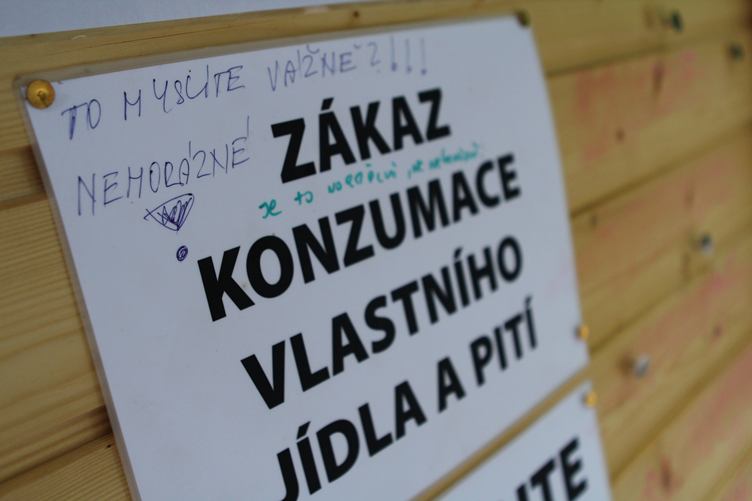 TO MYSLÍTE VAŽNĚ?!!!
NEHORÁZNÉ
ZÁKAZ
je to
KONZUMACE
VLASTNÍHO
JÍDLA A PITÍ